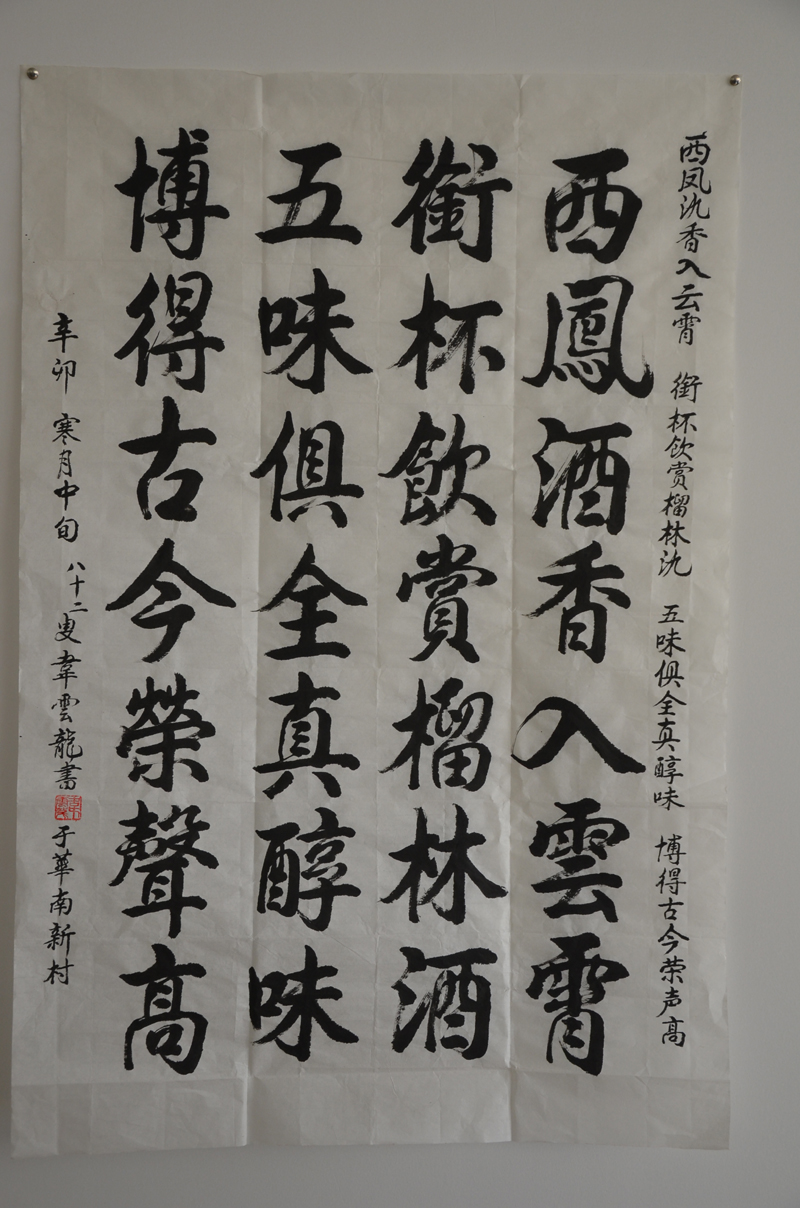 西凤氿香入云霄 銜杯飲赏榴林氿 五味俱全真醇味 博得古今荣声高
西鳳酒香入雲霄
銜杯飲賞榴林酒
五味俱全真醇味
博得古今榮聲高
辛卯 寒月中旬 八十二叟韋雲龍書 于華南新村